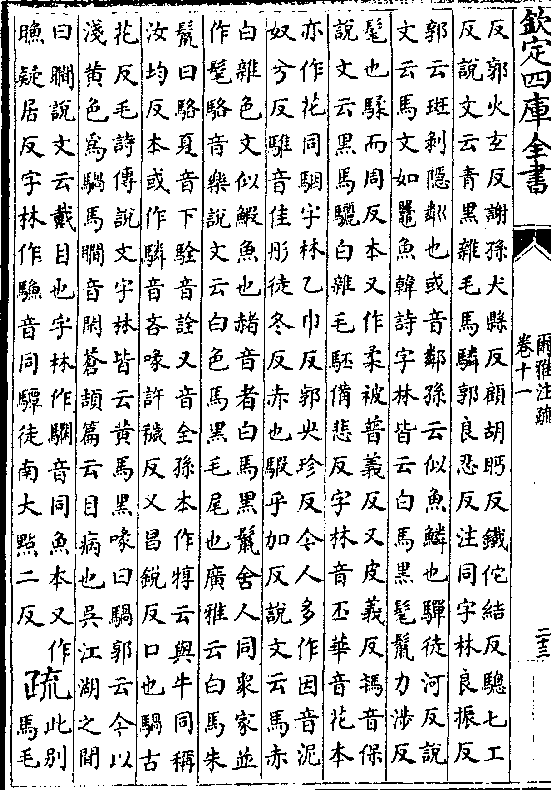 欽定四庫全書
爾雅注疏
卷十一
二三
反郭火玄反謝孫犬縣反顧胡眄反鐵佗結反驄七工
反說文云青黑雜毛馬驎郭良忍反注同字林良振反
郭云斑剝隱粼也或音鄰孫云似魚鱗也驒徒河反說
文云馬文如鼉魚韓詩字林皆云白馬黑髦鬛力涉反
髦也騥而周反本又作柔被普義反又皮義反鴇音保
說文云黑馬驪白雜毛駓備悲反字林音丕華音花本
亦作花同駰字林乙巾反郭央珍反今人多作因音泥
奴兮反騅音佳彤徒冬反赤也騢乎加反說文云馬赤
白雜色文似鰕魚也赭音者白馬黑鬛舍人同眾家並
作髦駱音樂說文云白色馬黑毛尾也廣雅云白馬朱
鬛曰駱夏音下駩音詮又音全孫本作犉云與牛同稱
汝均反本或作驎音吝喙許穢反又昌銳反口也騧古
花反毛詩傳說文字林皆云黃馬黑喙曰騧郭云今以
淺黃色為騧馬瞷音閑蒼頡篇云目病也吳江湖之間
曰瞷說文云戴目也字林作音同魚本又作
疑居反字林作音同驔徒南大點二反
疏
此別
馬毛